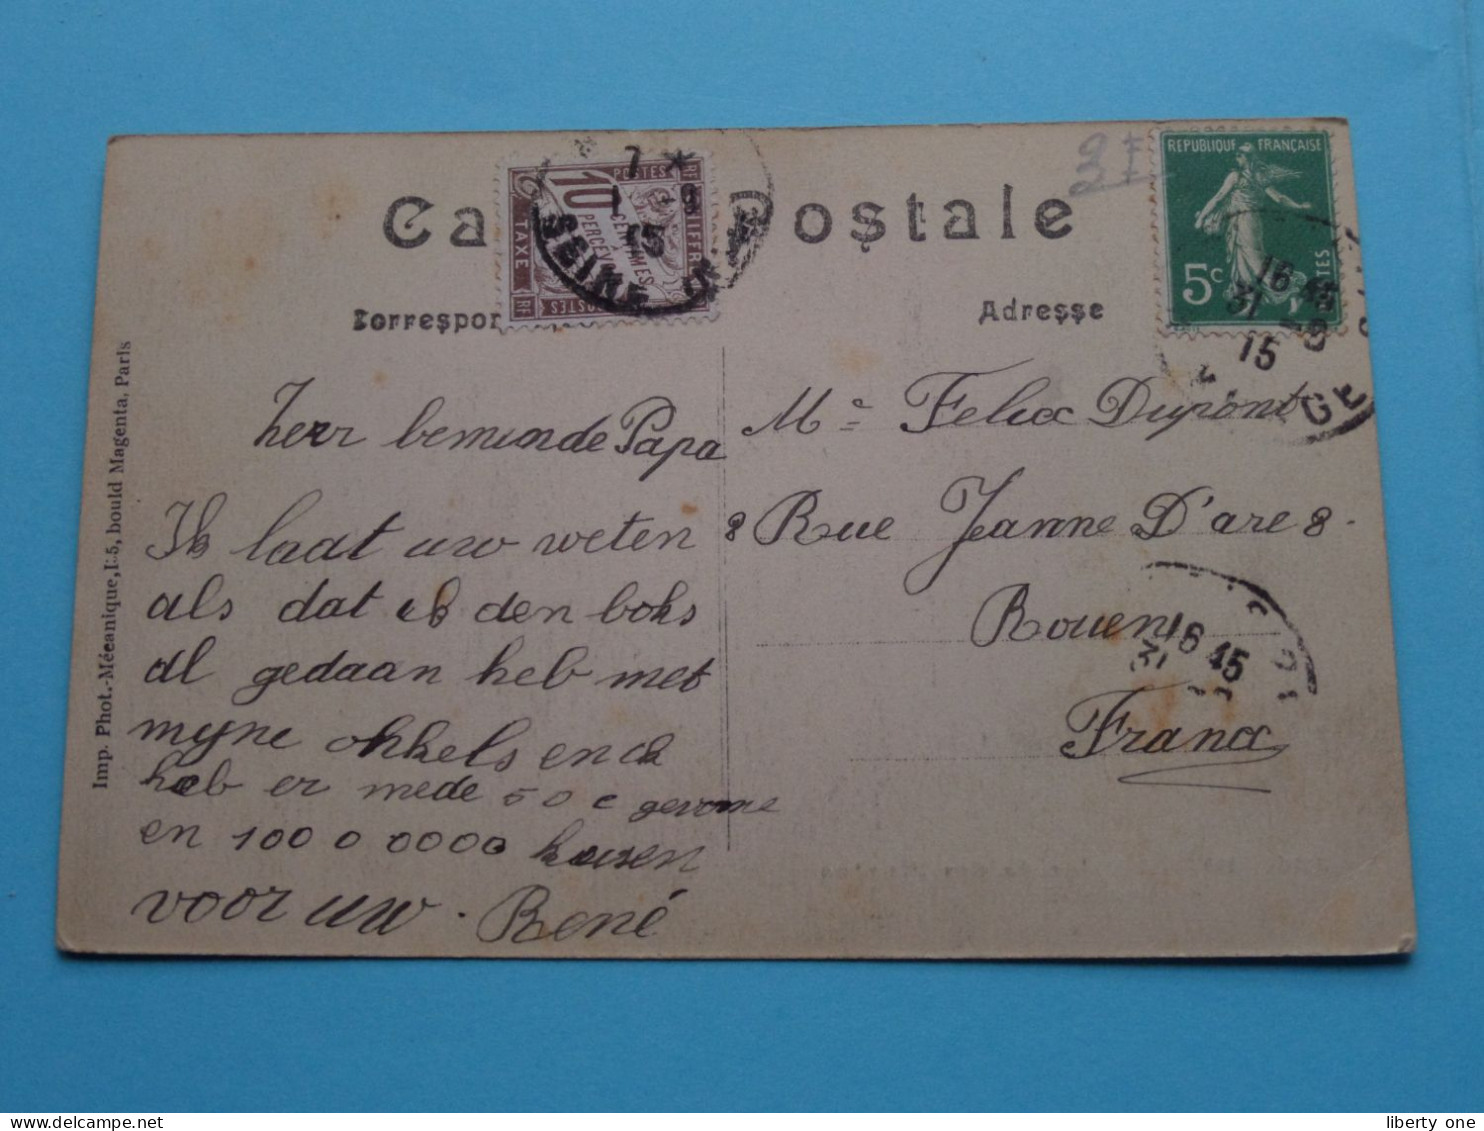 Ca Postale
Correspon
Adresse
Imp. Phot.-Mécanique, 1:5, bould Magenta, Paris
POSTES
RF
10
CENTIMES
À
PERCEVOIR
TAXE
RF
POSTES
7 *
1 -9
15
SEINE
27
REPUBLIQUE FRANÇAISE
5c
POSTES
16 45
31 -8
15
GE
Zeer beminde Papa
Ik laat uw weten
als dat ik den boks
al gedaan heb met
myne okkels en ik
heb er mede 50 c gevonne
en 100 0 0000 kussen
voor uw. René
Mr = Felix Dupont
8 Rue Jeanne D'arc 8.
Rouen
France
16 45
31
liberty one